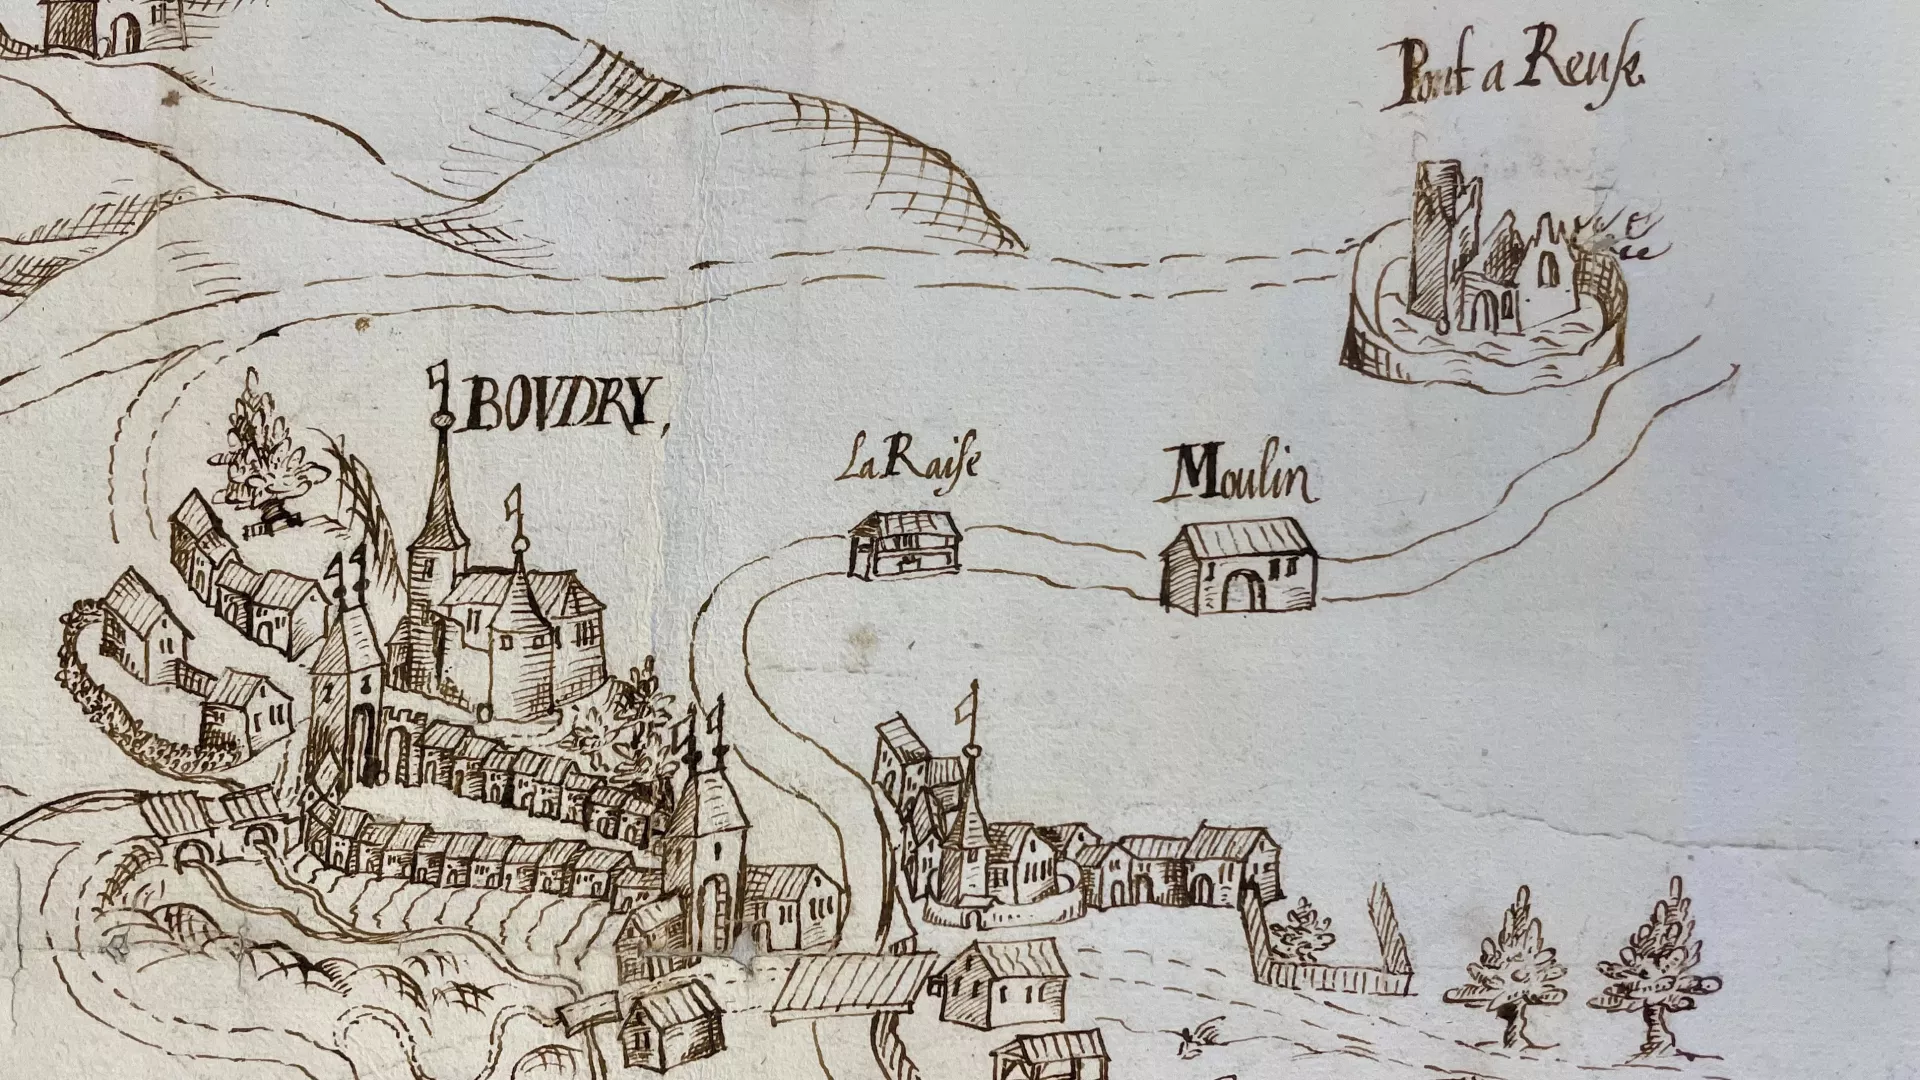 Pont a Reuſe
BOVDRY,
La Raiſe
Moulin